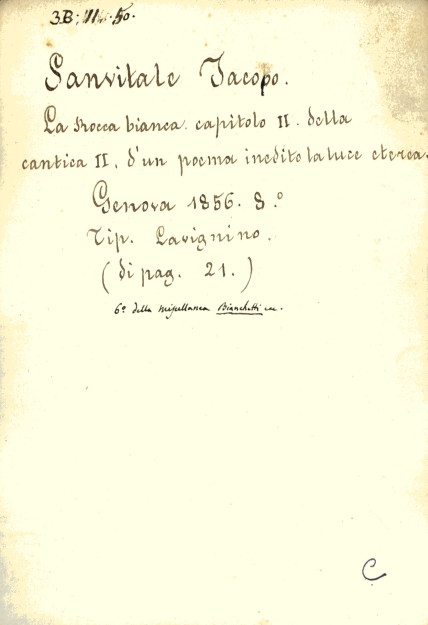 3B; VI. 50.
Sanvitale Jacopo.
La Rocca bianca. capitolo II. della
cantica II. d'un poema inedito la luce eterea.
Genova 1856. 8.°
Tip. Lavignino.
(di pag. 21.)
6° della miscellanea Bianchetti
C